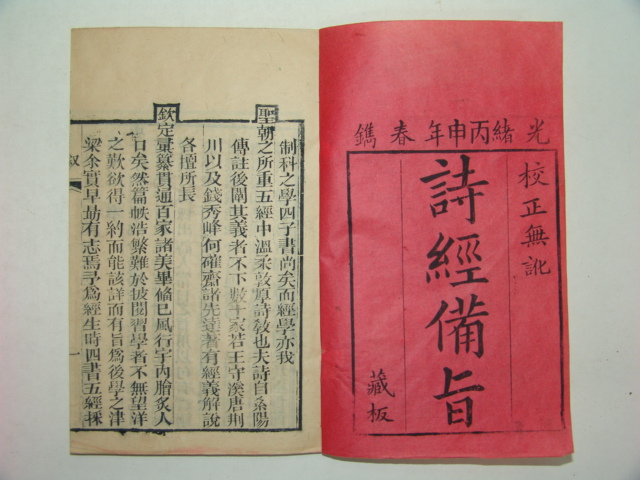 光緒丙申年春鐫
校正無訛
詩經備旨
藏板
制科之學四子書尚矣而經學亦我
聖朝之所重五經中溫柔敦厚詩教也夫詩自紫陽
傳註後闡其義者不下數十家若王守溪唐荆
川以及錢秀峰何確齋諸先達著有經義解說
各擅所長
欽定彙纂貫通百家諸美畢備已風行宇內膾炙人
口矣然篇帙浩繁難於披閱習學者不無望洋
之歎欲得一約而能該詳而有旨為後學之津
梁余實早劫有志焉予為經生時四書五經採
叙
一